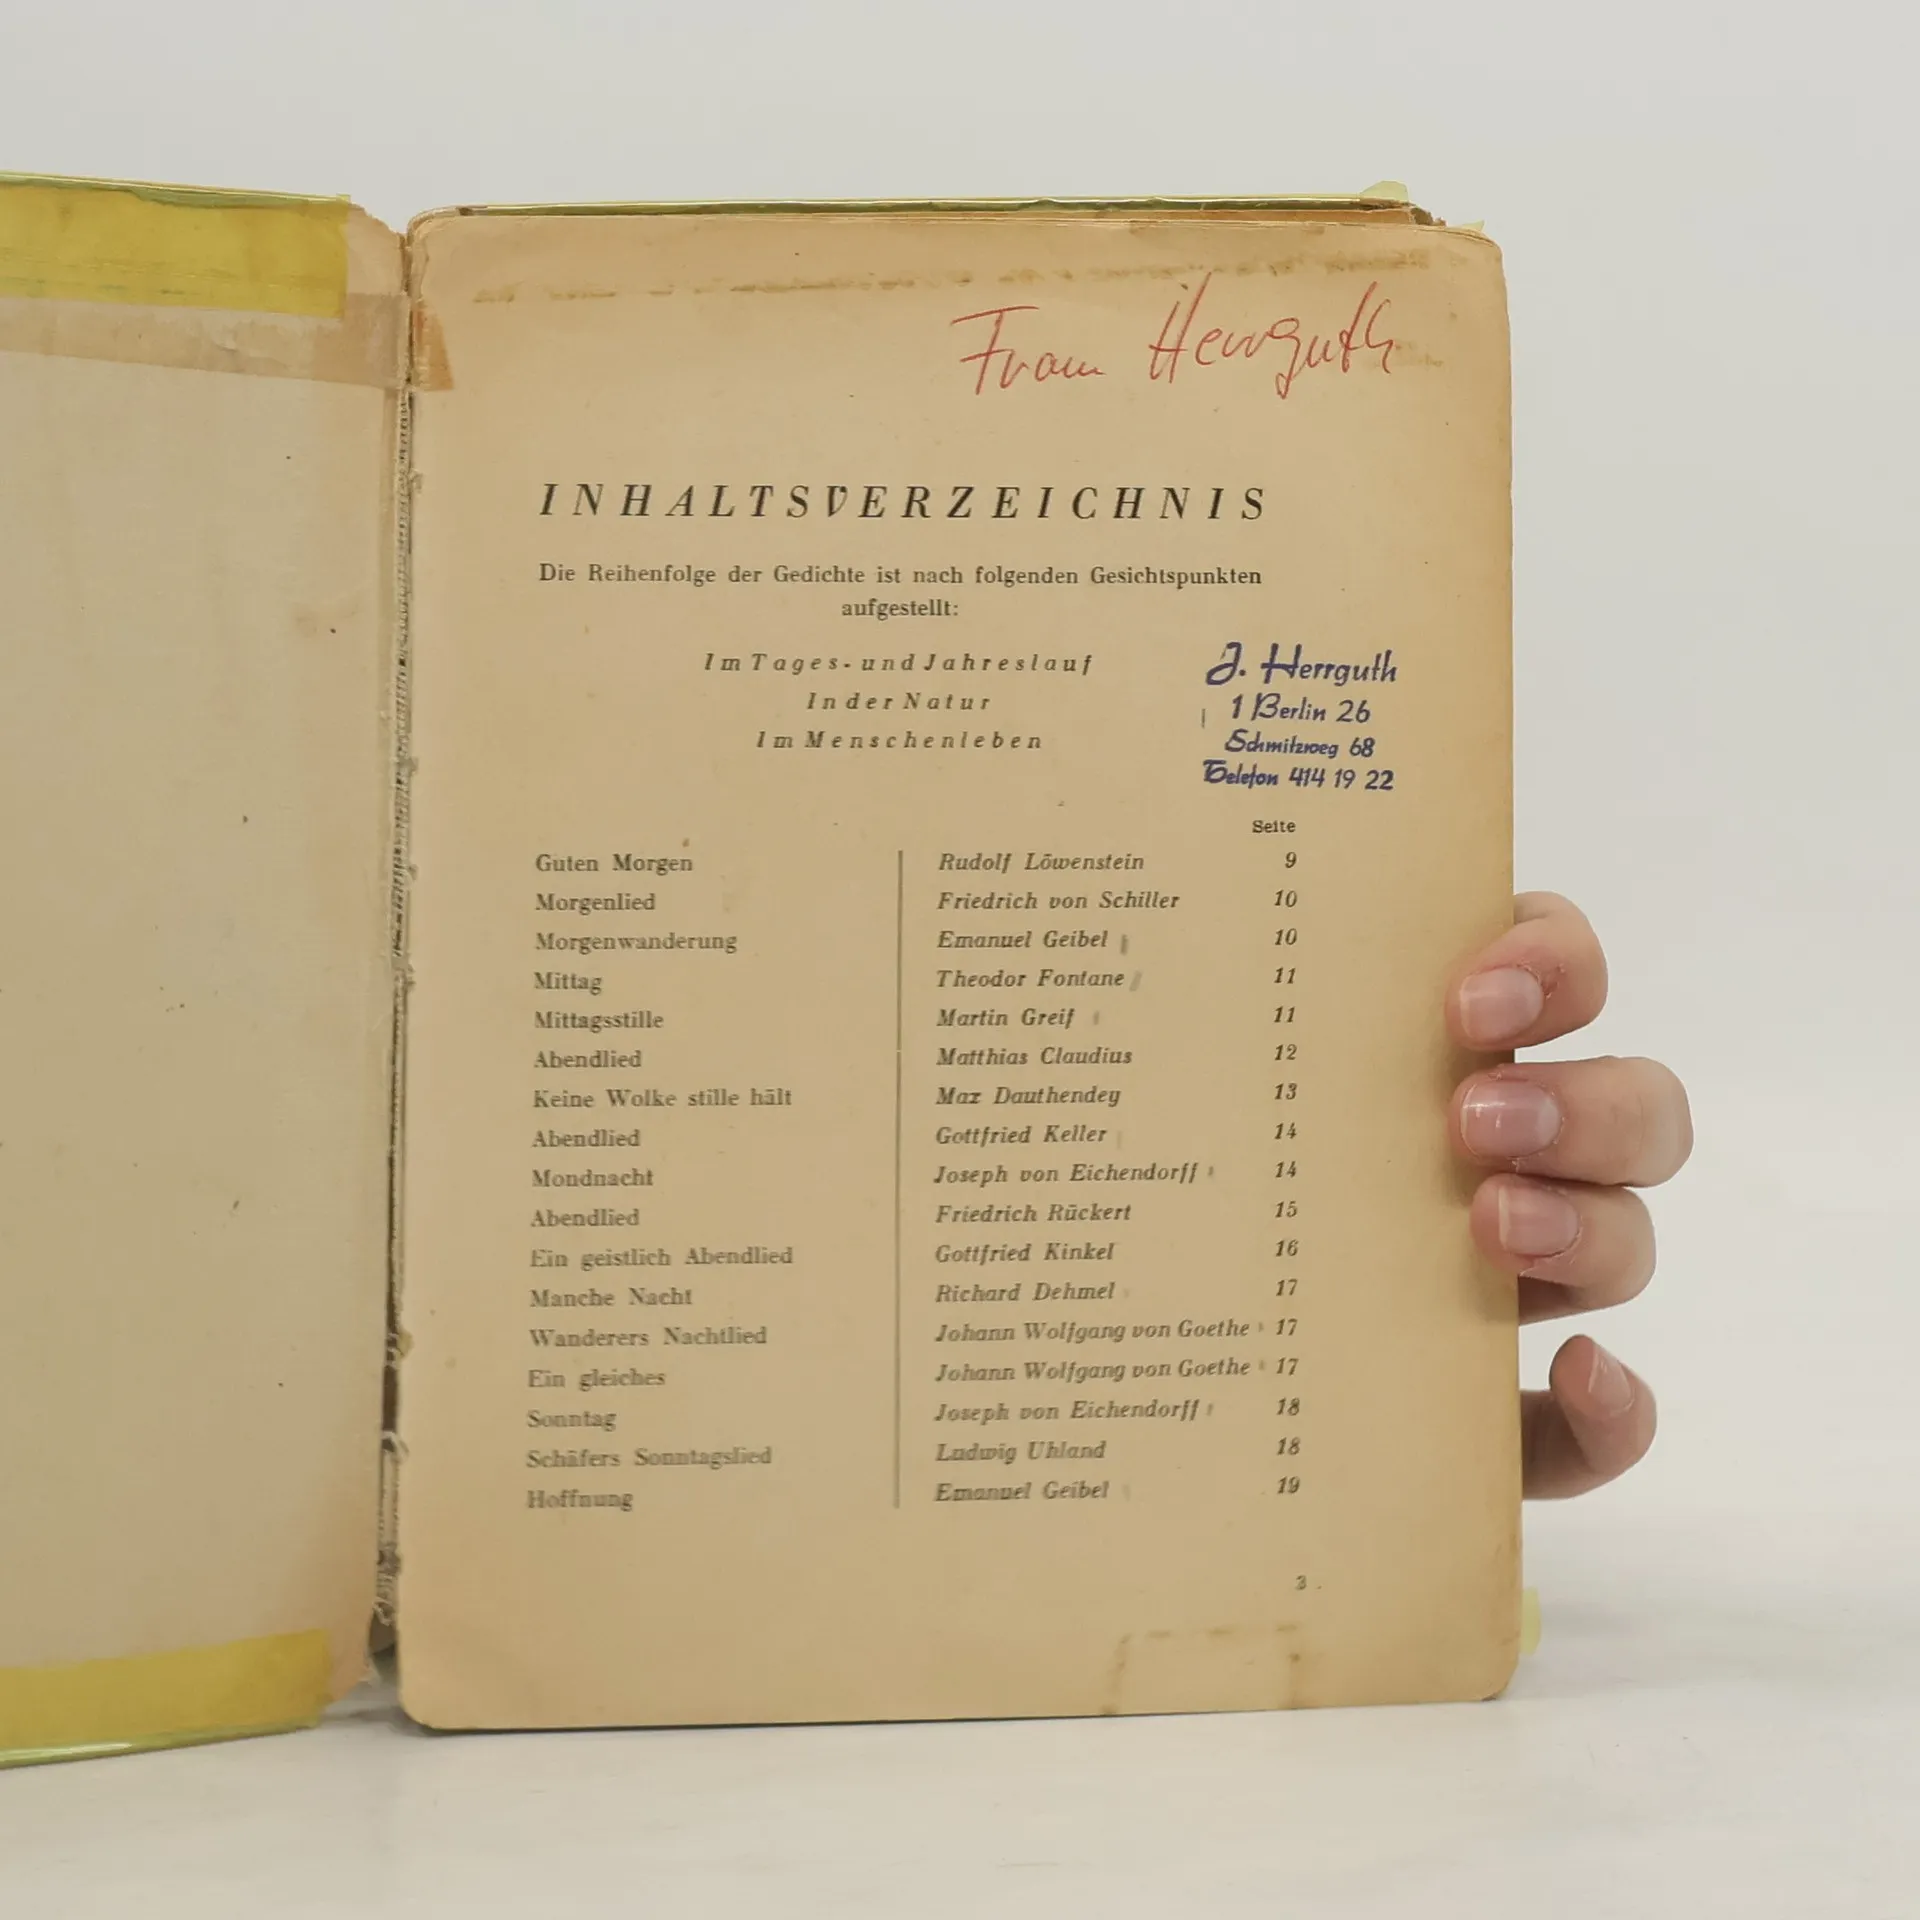 Frau Herrguth
INHALTSVERZEICHNIS
Die Reihenfolge der Gedichte ist nach folgenden Gesichtspunkten
aufgestellt:
Im Tages- und Jahreslauf
In der Natur
Im Menschenleben
J. Herrguth
1 Berlin 26
Schmitzweg 68
Telefon 414 19 22
Seite
Guten Morgen Rudolf Löwenstein 9
Morgenlied Friedrich von Schiller 10
Morgenwanderung Emanuel Geibel 10
Mittag Theodor Fontane 11
Mittagsstille Martin Greif 11
Abendlied Matthias Claudius 12
Keine Wolke stille hält Max Dauthendey 13
Abendlied Gottfried Keller 14
Mondnacht Joseph von Eichendorff 14
Abendlied Friedrich Rückert 15
Ein geistlich Abendlied Gottfried Kinkel 16
Manche Nacht Richard Dehmel 17
Wanderers Nachtlied Johann Wolfgang von Goethe 17
Ein gleiches Johann Wolfgang von Goethe 17
Sonntag Joseph von Eichendorff 18
Schäfers Sonntagslied Ludwig Uhland 18
Hoffnung Emanuel Geibel 19
3